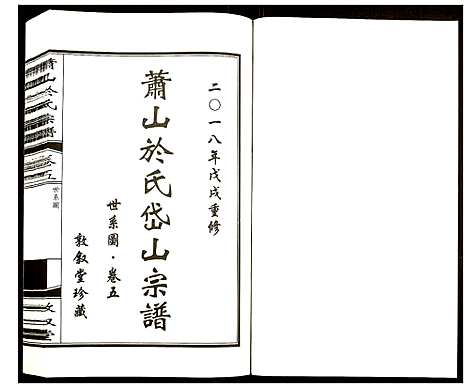 二〇一八年戊戌重修
蕭山於氏岱山宗譜
世系圖·卷五
敦叙堂珍藏
蕭山於氏宗譜
卷五
世系圖